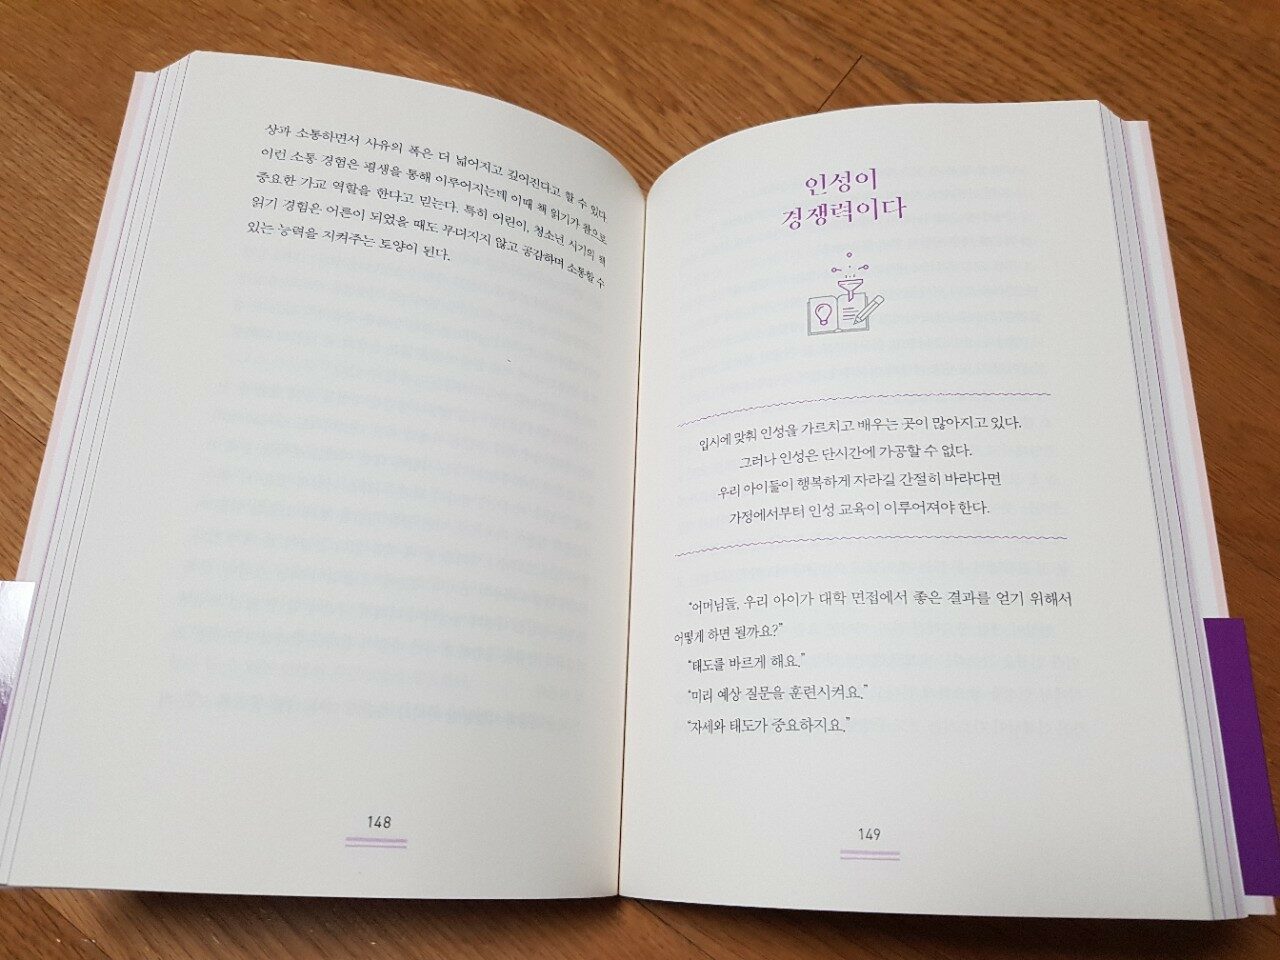 상과 소통하면서 사유의 폭은 더 넓어지고 깊어진다고 할 수 있다
이런 소통 경험은 평생을 통해 이루어지는데 이때 책 읽기가 참으로
중요한 가교 역할을 한다고 믿는다. 특히 어린이, 청소년 시기의 책
읽기 경험은 어른이 되었을 때도 무너지지 않고 공감하며 소통할 수
있는 능력을 지켜주는 토양이 된다.
148
인성이
경쟁력이다
입시에 맞춰 인성을 가르치고 배우는 곳이 많아지고 있다.
그러나 인성은 단시간에 가공할 수 없다.
우리 아이들이 행복하게 자라길 간절히 바라다면
가정에서부터 인성 교육이 이루어져야 한다.
“어머님들, 우리 아이가 대학 면접에서 좋은 결과를 얻기 위해서
어떻게 하면 될까요?”
“태도를 바르게 해요.”
“미리 예상 질문을 훈련시켜요.”
“자세와 태도가 중요하지요.”
149